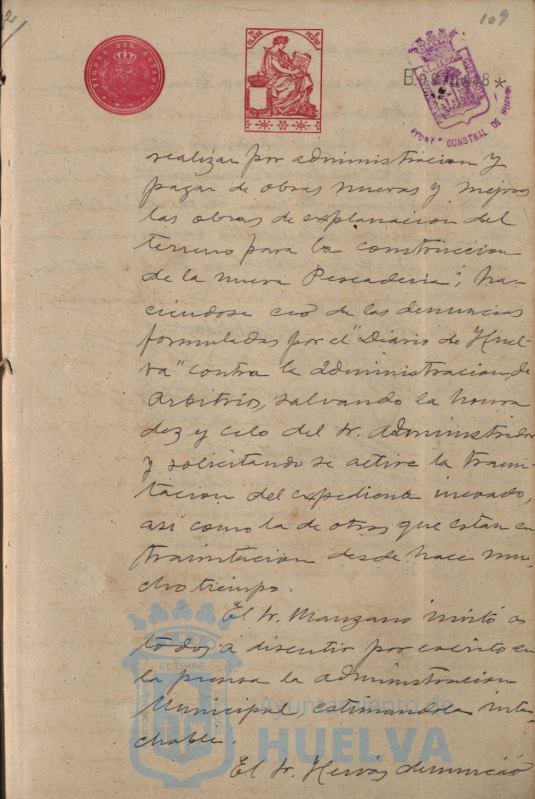 109
TIMBRE DEL ESTADO
CLASE
AYUNT° CONSTNAL DE HUELVA
realizar por administracion y
pagar de obras nuevas y mejoras
las obras de explanacion del
terreno para la construccion
de la nueva Pescaderia; ha-
ciendose eco de las denuncias
formuladas por el "Diario de Huel-
va" contra la administracion de
arbitrios, salvando la honra
dez y celo del Sr. Administrador
y solicitando se active la trami-
tacion del expediente incoado,
asi como la de otros que estan en
tramitacion desde hace mu-
cho tiempo.
El Sr. Manzano invitó a
todos á discutir por escrito en
la prensa la administracion
Municipal, estimandola inta-
chable.
El Sr. Hervás denunció
Ayuntamiento de
HUELVA